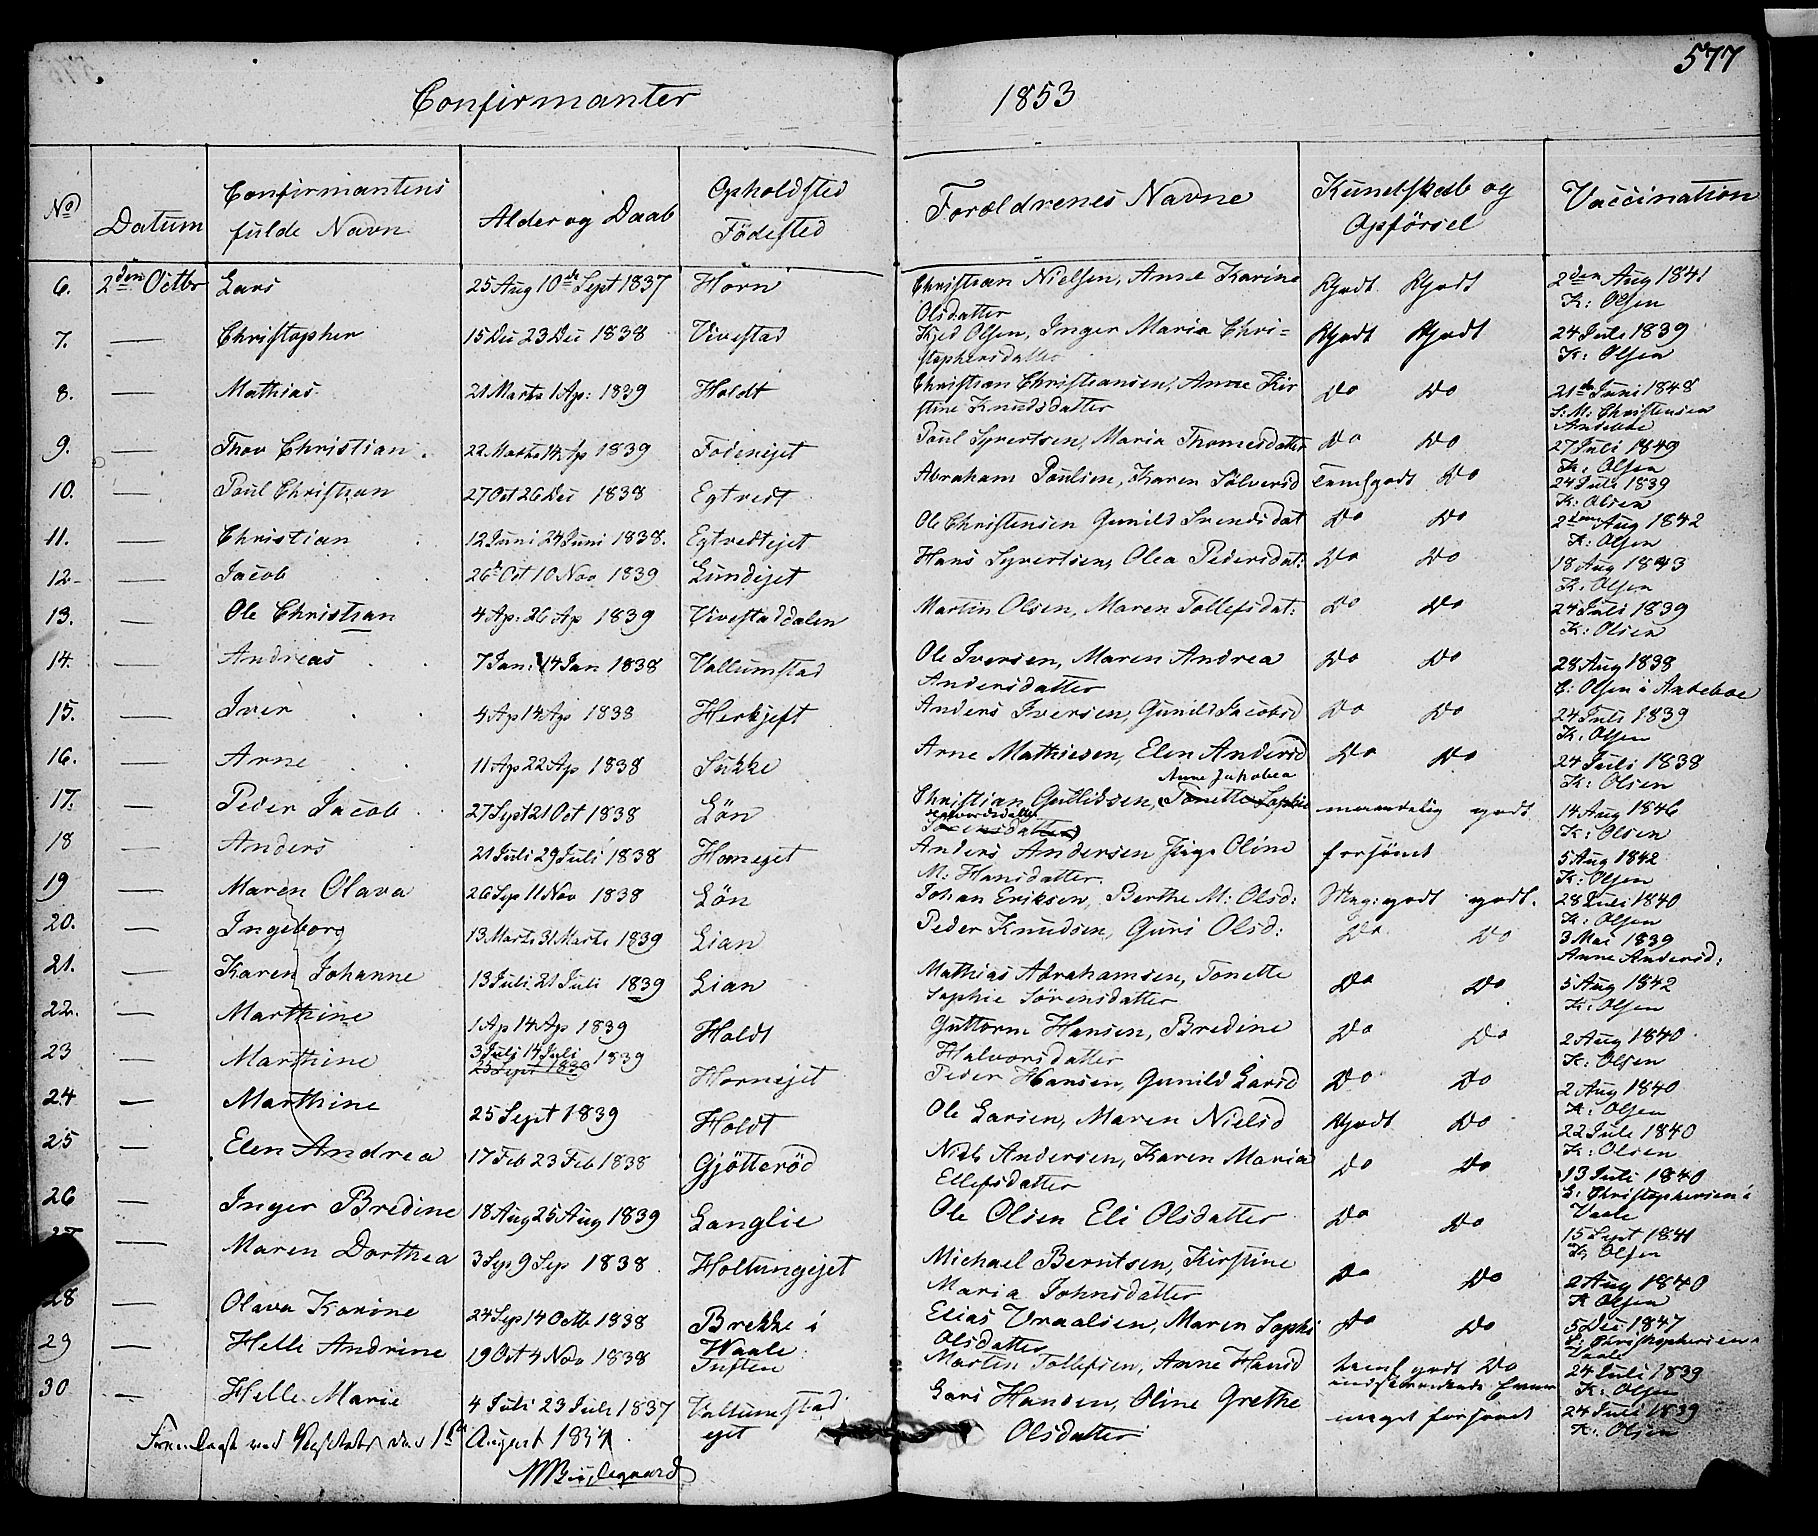 577
Confirmanter 1853
No Datum Confirmantens fulde Navn Alder og Daab Opholdsted Födested Forældrenes Navne Kundskab og Opførsel Vaccination
6. 2den Octbr Lars 25 Aug 10de Sept 1837 Horn Christian Nielsen, Anne Karine Olsdatter Rgodt Rgodt 2den Aug 1841 K: Olsen
7. — Christopher 15 Dec 23 Dec 1838 Vivestad Kjed Olsen, Inger Maria Christophersdatter Rgodt Rgodt 24 Juli 1839 K: Olsen
8. — Mathias 21 Marts 1 Ap: 1839 Holdt Christian Christiansen, Anne Kirstine Knudsdatter Do Do 21de Juni 1848 S: M: Christensen Andebue
9. — Thov Christian 22 Marts 14 Ap 1839 Fodenejet Poul Syvertsen, Maria Thomesdatter Do Do 27 Juli 1849 K: Olsen
10. — Poul Christian 27 Oct 26 Dec 1838 Egtvedt Abraham Poulsen, Karen Sölversd Temlgodt Do 24 Juli 1839 K: Olsen
11. — Christian 12 Juni 24 Juni 1838. Egtvedtejet Ole Christensen Gunild Svendsdat Do Do 2den Aug 1842 K: Olsen
12. — Jacob 26de Oct 10 Nov 1839 Lundejet Hans Syvertsen, Olea Pedersdat: Do Do 18 Aug 1843 K: Olsen
13. — Ole Christian 4 Ap: 26 Ap 1839 Vivestaddalen Martin Olsen, Maren Tollefsdat: Do Do 24 Juli 1839 K: Olsen
14. — Andreas 7 Jan: 14 Jan 1838 Vallumstad Ole Iversen, Maren Andrea Andersdatter Do Do 28 Aug 1838 C: Olsen i Andeboe
15. — Iver 4 Ap 14 Ap 1838 Herkjeft Anders Iversen, Gunild Jacobsd Do Do 24 Juli 1839 K: Olsen
16. — Arne 11 Ap 22 Ap 1838 Sukke Arne Mathiesen, Elen Andersd Do Do 24 Juli 1838 K: Olsen
17. — Peder Jacob 27 Sept 21 Oct 1838 Lön Christian Gullicksen, Tonette Sophie Sörensdatter Anne Jakobea maadelig godt 14 Aug 1846 K: Olsen
18 — Anders 21 Juli 29 Juli 1838 Horneejet Anders Andersen Pige Oline M: Hansdatter. forsömt 5 Aug 1842 K: Olsen
19 — Maren Olava 26 Sep 11 Nov 1838 Lön Johan Eriksen, Berthe M: Olsd: Meg: godt godt. 28 Juli 1840 K: Olsen
20. — Ingeborg 13 Marts 31 Marts 1839 Lian Peder Knudsen, Guri Olsd: Do Do 3 Mai 1839 Anne Andersd:
21. — Karen Johanne 13 Juli 21 Juli 1839 Lian Mathias Abrahamsen, Tonette Sophie Sörensdatter Do Do 5 Aug 1842 K: Olsen
22. — Marthine 1 Ap 14 Ap 1839 Holdt Guttorm Hansen, Bredine Halvorsdatter Do Do 2 Aug 1840 K: Olsen
23 — Marthine 3 Juli 14 Juli 1839 25 Sept 1839 Hornejet Peder Hansen, Gunild Larsd Do Do 2 Aug 1840 K: Olsen
24 — Marthine 25 Sept 1839 Holdt Ole Larsen, Maren Nielsd Rgodt Do 22 Jule 1840 K: Olsen
25 — Elen Andrea 17 Feb 23 Feb 1838 Gjötteröd Niels Andersen, Karen Maria Ellefsdatter Do Do 13 Juli 1840 S: Christophersen i Vaale
26 — Inger Bredine 18 Aug 25 Aug 1839 Langlie Ole Olsen Eli Olsdatter Do Do 15 Sept 1841 K: Olsen
27 — Maren Dorthea 3 Sep 9 Sep 1838 Holtungejet Michael Berntsen, Kirstine Maria Johnsdatter Do Do 2 Aug 1840 K Olsen
28 — Olava Karine 24 Sep 14 Octb 1838 Brekke i Waale Elias Vraalsen, Maren Sophi Olsdatter Do Do 5 Dec 1847 S: Christophersen i Vaale
29 — Helle Andrine 19 Oct 4 Nov 1838 Tuften Martin Tollefsen, Anne Hansd temlgodt Do 24 Juli 1839 K: Olsen
30 — Helle Marie 4 Juli 23 Juli 1837 Vallumstad ejet Lars Hansen, Oline Grethe Olsdatter meget forsömt 24 Juli 1839 K: Olsen
Fremlagt ved den 1ste August 1854